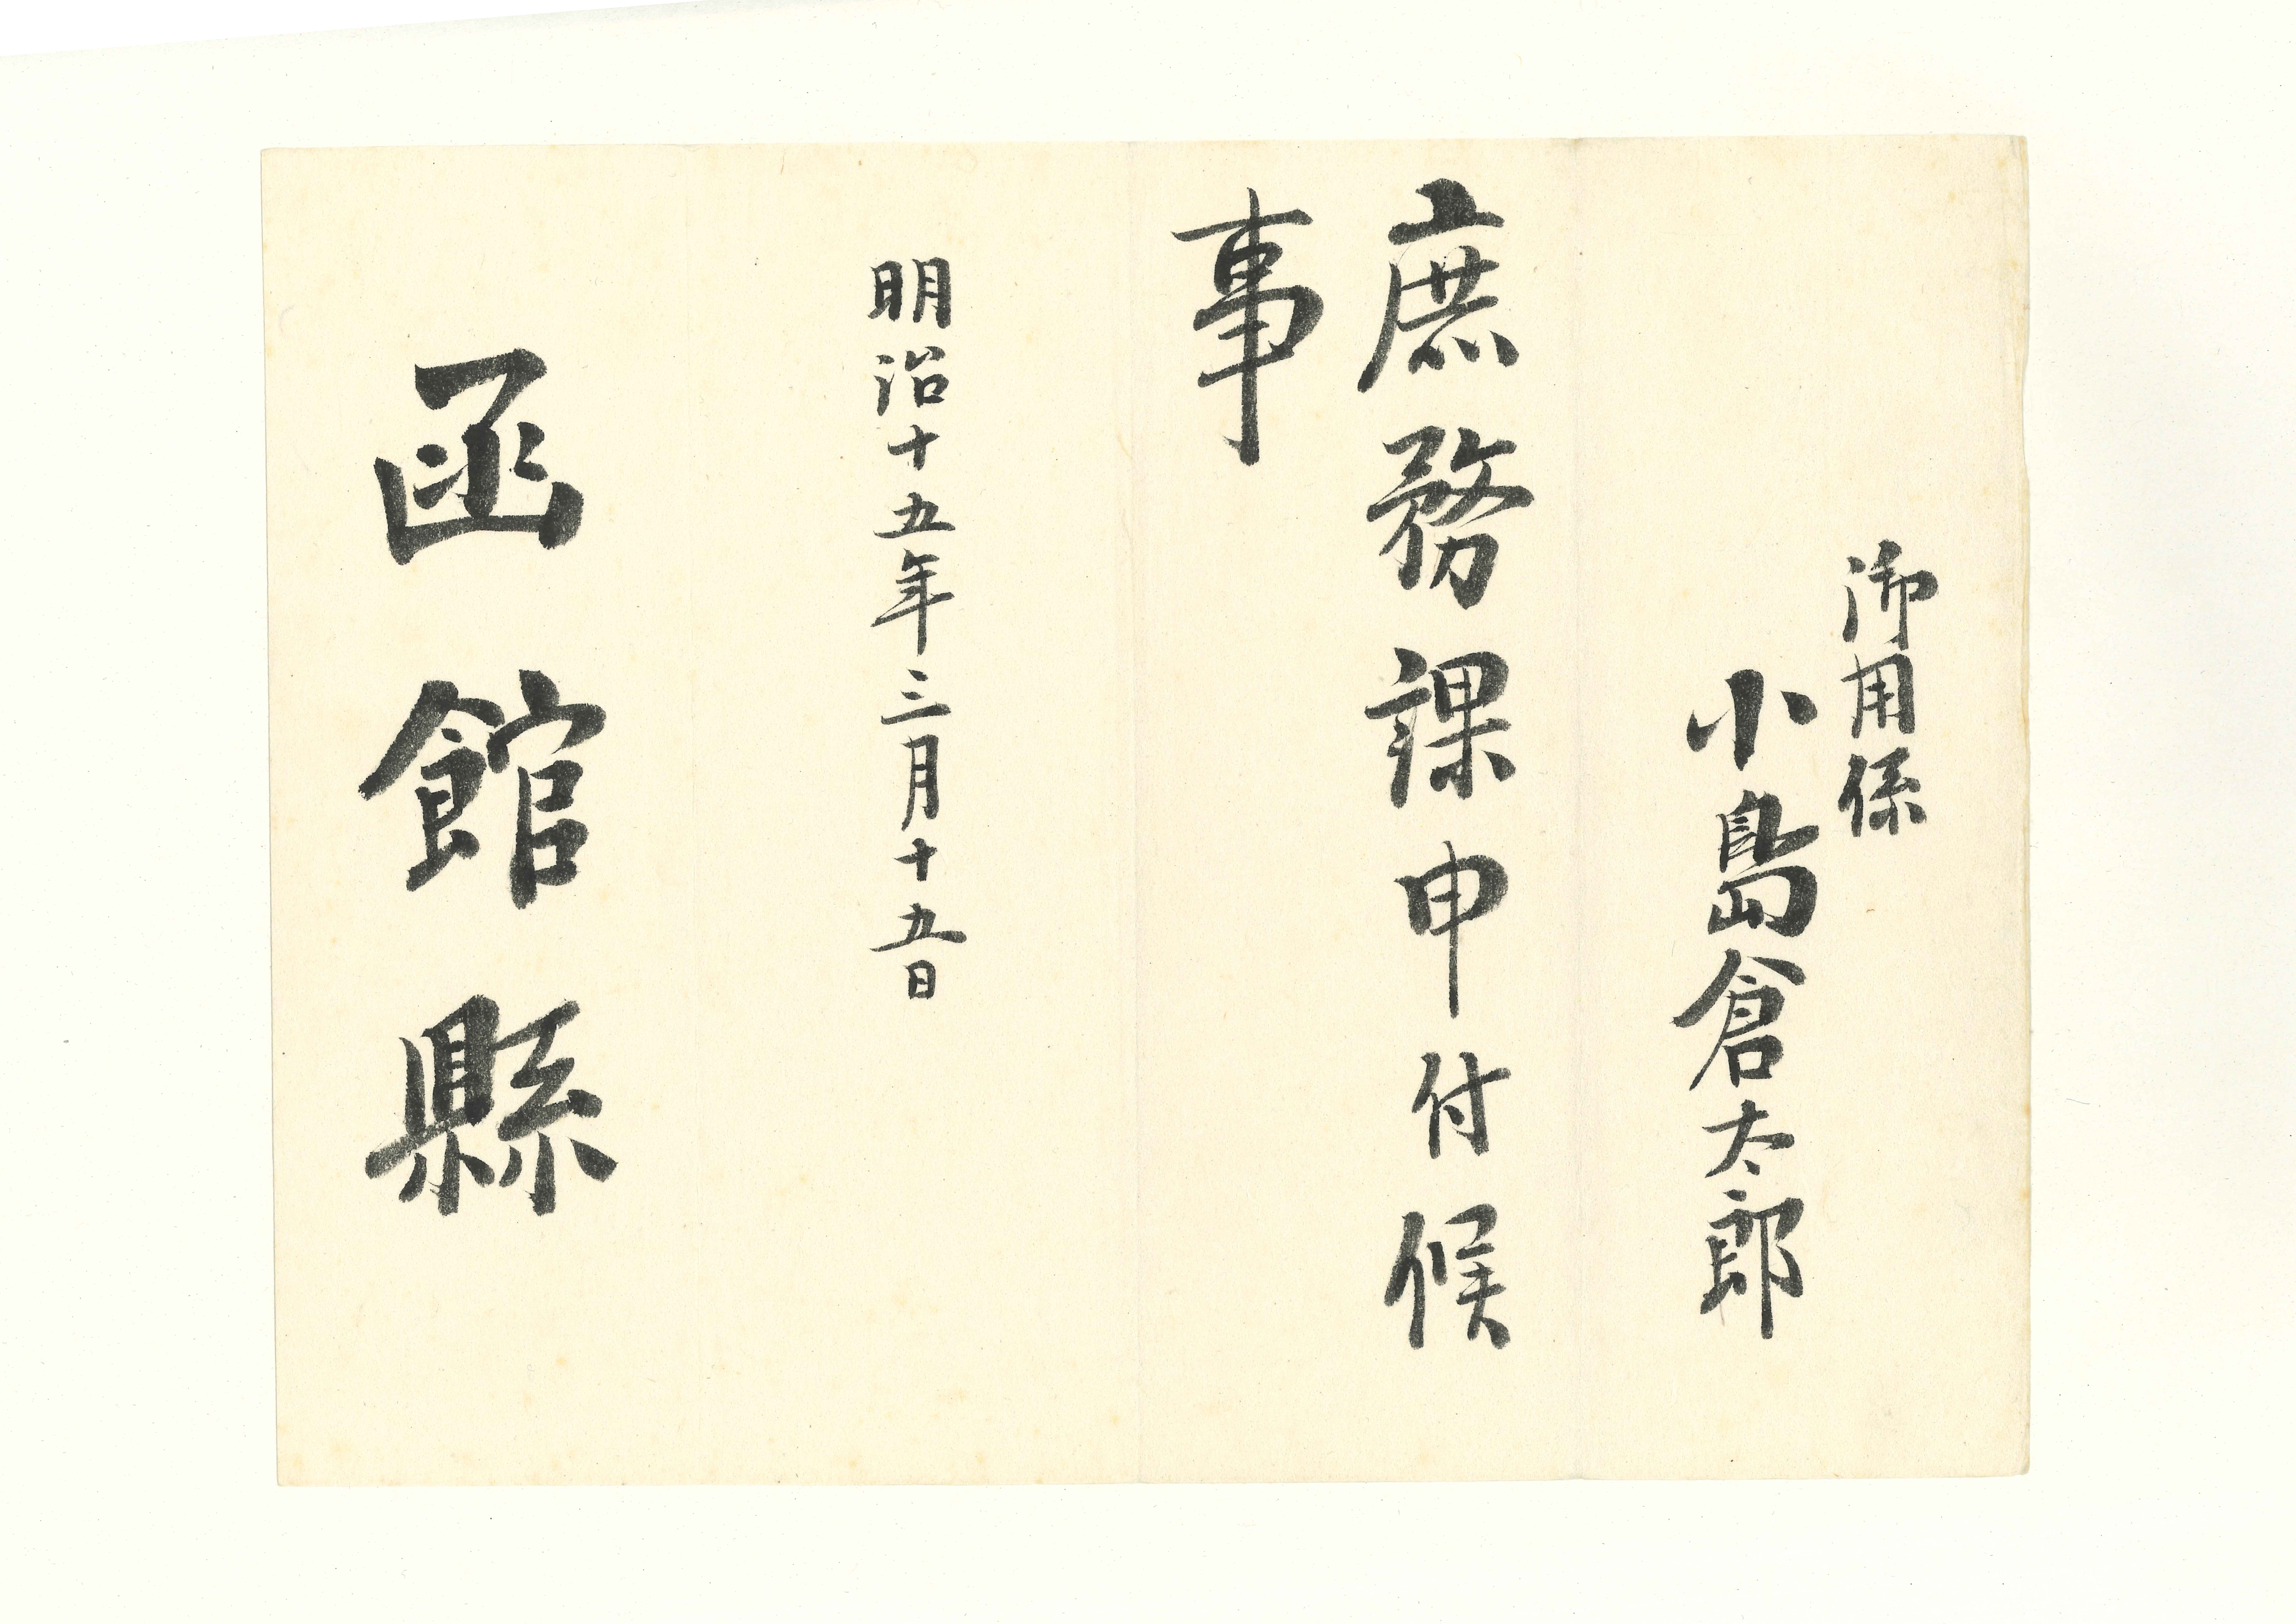 御用係
小島倉太郎
庶務課申付候
事
明治十五年三月十五日
函館縣